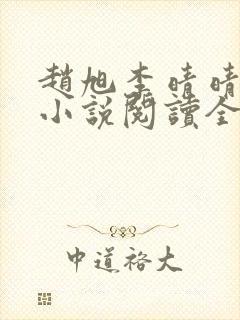 趙旭李晴晴
小說閱讀全
中道裕大